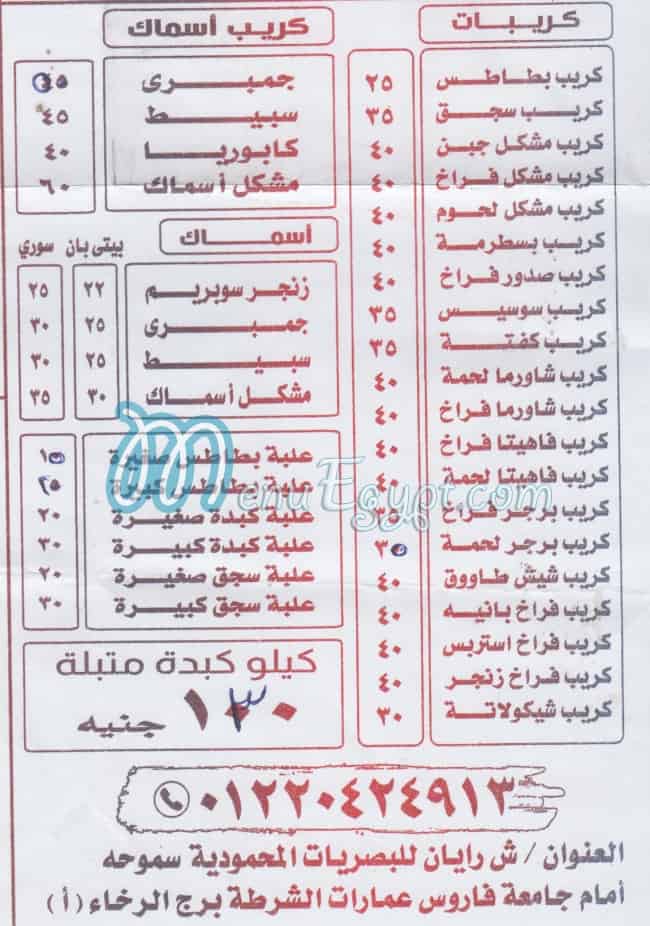 كريبات
كريب بطاطس ٢٥
كريب سجق ٣٥
كريب مشكل جبن ٤٠
كريب مشكل فراخ ٤٠
كريب مشكل لحوم ٤٠
كريب بسطرمة ٤٠
كريب صدور فراخ ٤٠
كريب سوسيس ٣٥
كريب كفتة ٣٥
كريب شاورما لحمة ٤٠
كريب شاورما فراخ ٤٠
كريب فاهيتا فراخ ٤٠
كريب فاهيتا لحمة ٤٠
كريب برجر فراخ ٣٥
كريب برجر لحمة
كريب شيش طاووق ٤٠
كريب فراخ بانيه ٤٠
كريب فراخ استربس ٤٠
كريب فراخ زنجر ٤٠
كريب شيكولاتة ٣٠
كريب أسماك
جمبرى
سبيط ٤٥
كابوريا ٤٠
مشكل أسماك ٦٠
أسماك بيتى بان سوري
زنجر سوبريم ٢٢ ٢٥
جمبرى ٢٥ ٣٠
سبيط ٢٥ ٣٠
مشكل أسماك ٣٠ ٣٥
علبة بطاطس صغيرة
علبة بطاطس كبيرة
علبة كبدة صغيرة ٢٠
علبة كبدة كبيرة ٣٠
علبة سجق صغيرة ٢٠
علبة سجق كبيرة ٣٠
كيلو كبدة متبلة
جنيه
٠١٢٢٠٤٢٤٩١٣
العنوان / ش رايان للبصريات المحمودية سموحه
أمام جامعة فاروس عمارات الشرطة برج الرخاء (أ)
MenuEgypt.com